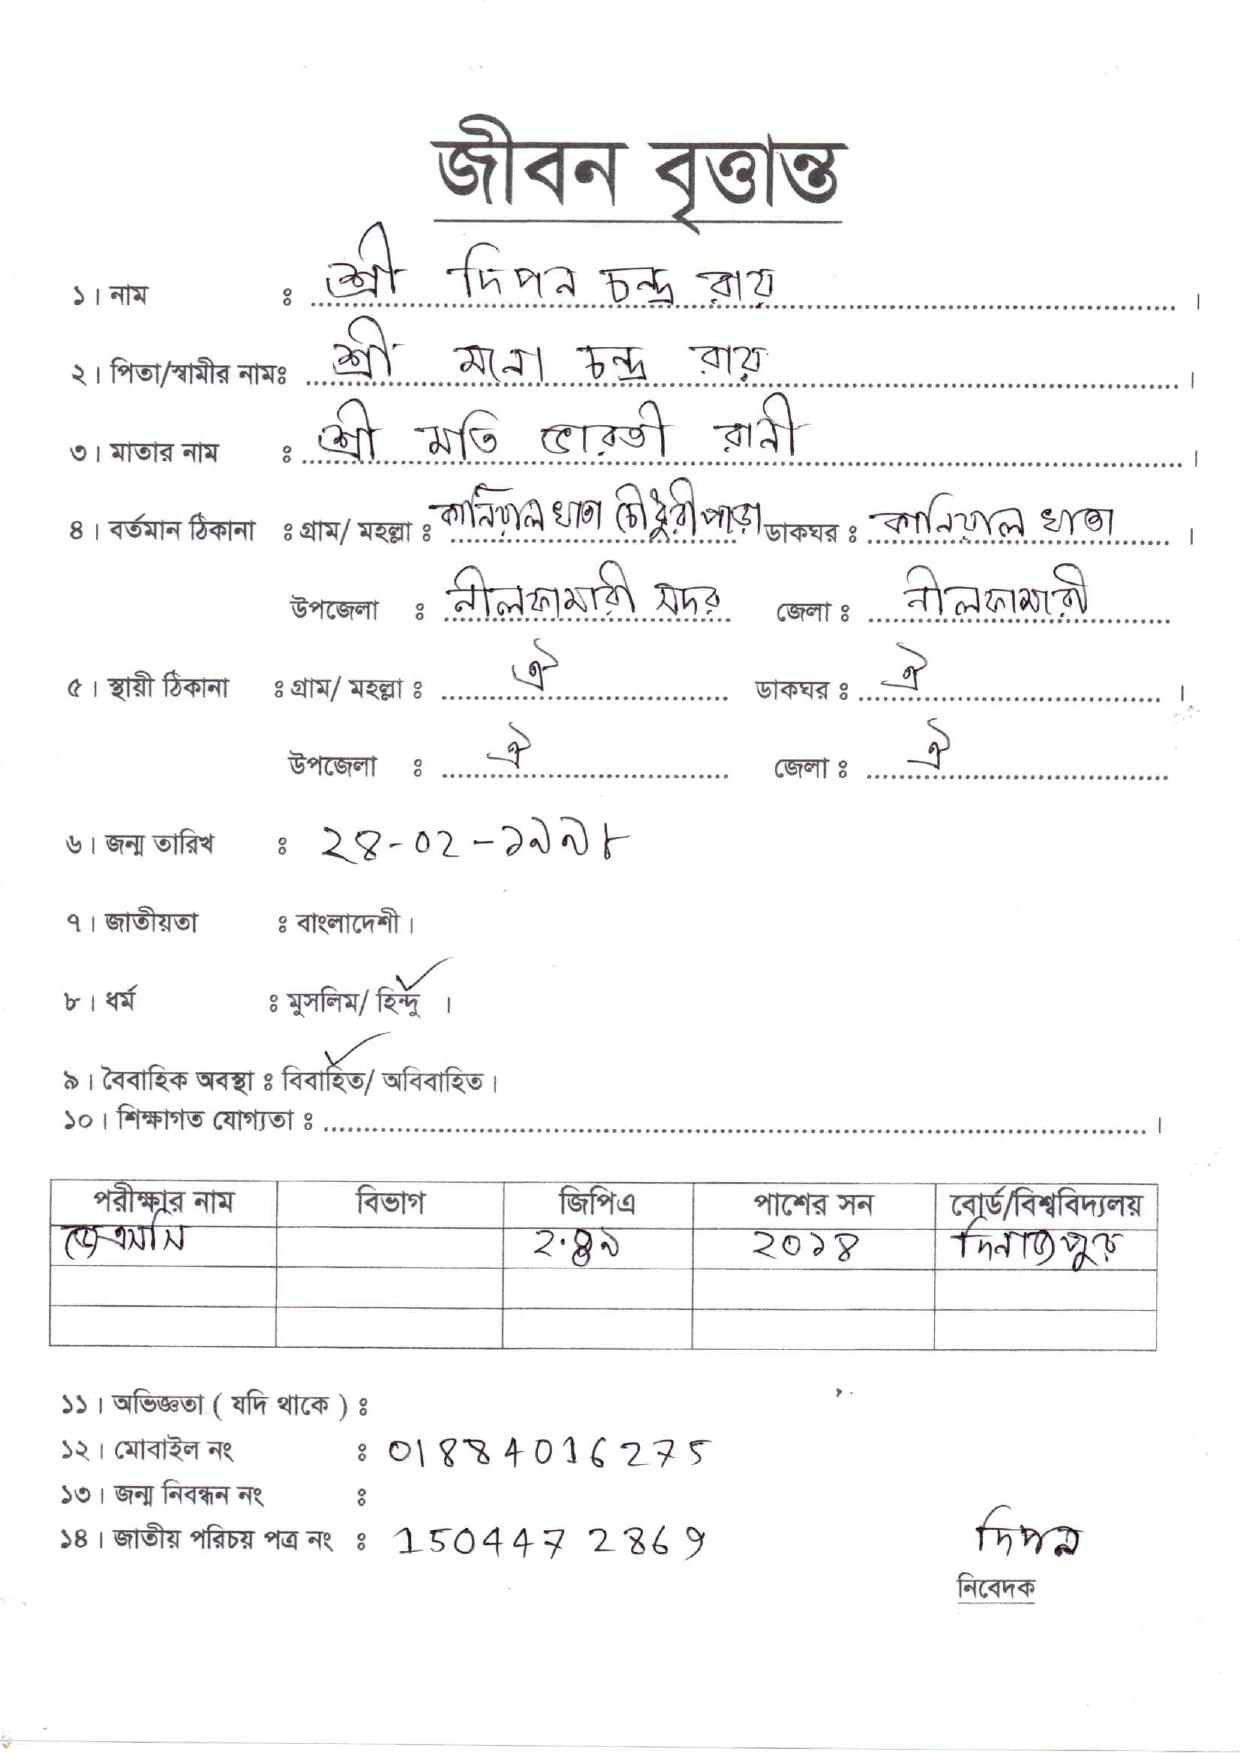 জীবন বৃত্তান্ত
১। নাম : শ্রী দিপন চন্দ্র রায় ।
২। পিতা/স্বামীর নামঃ শ্রী মনো চন্দ্র রায় ।
৩। মাতার নাম : শ্রী মতি ভারতী রানী ।
৪। বর্তমান ঠিকানা : গ্রাম/ মহল্লা : কানিয়াল খাতা চৌধুরীপাড়া ডাকঘর : কানিয়াল খাতা ।
উপজেলা : নীলফামারী সদর জেলা : নীলফামারী
৫। স্থায়ী ঠিকানা : গ্রাম/ মহল্লা : ঐ ডাকঘর : ঐ ।
উপজেলা : ঐ জেলা : ঐ
৬। জন্ম তারিখ : ২৪-০২-১৯৯৮
৭। জাতীয়তা : বাংলাদেশী।
৮। ধর্ম : মুসলিম/ হিন্দু ।
৯। বৈবাহিক অবস্থা : বিবাহিত/ অবিবাহিত।
১০। শিক্ষাগত যোগ্যতা : ।
পরীক্ষার নাম বিভাগ জিপিএ পাশের সন বোর্ড/বিশ্ববিদ্যলয়
জেএসসি ২.৪৯ ২০১৪ দিনাজপুর
১১। অভিজ্ঞতা ( যদি থাকে ) :
১২। মোবাইল নং : 01884016275
১৩। জন্ম নিবন্ধন নং :
১৪। জাতীয় পরিচয় পত্র নং : 1504472869
দিপন
নিবেদক